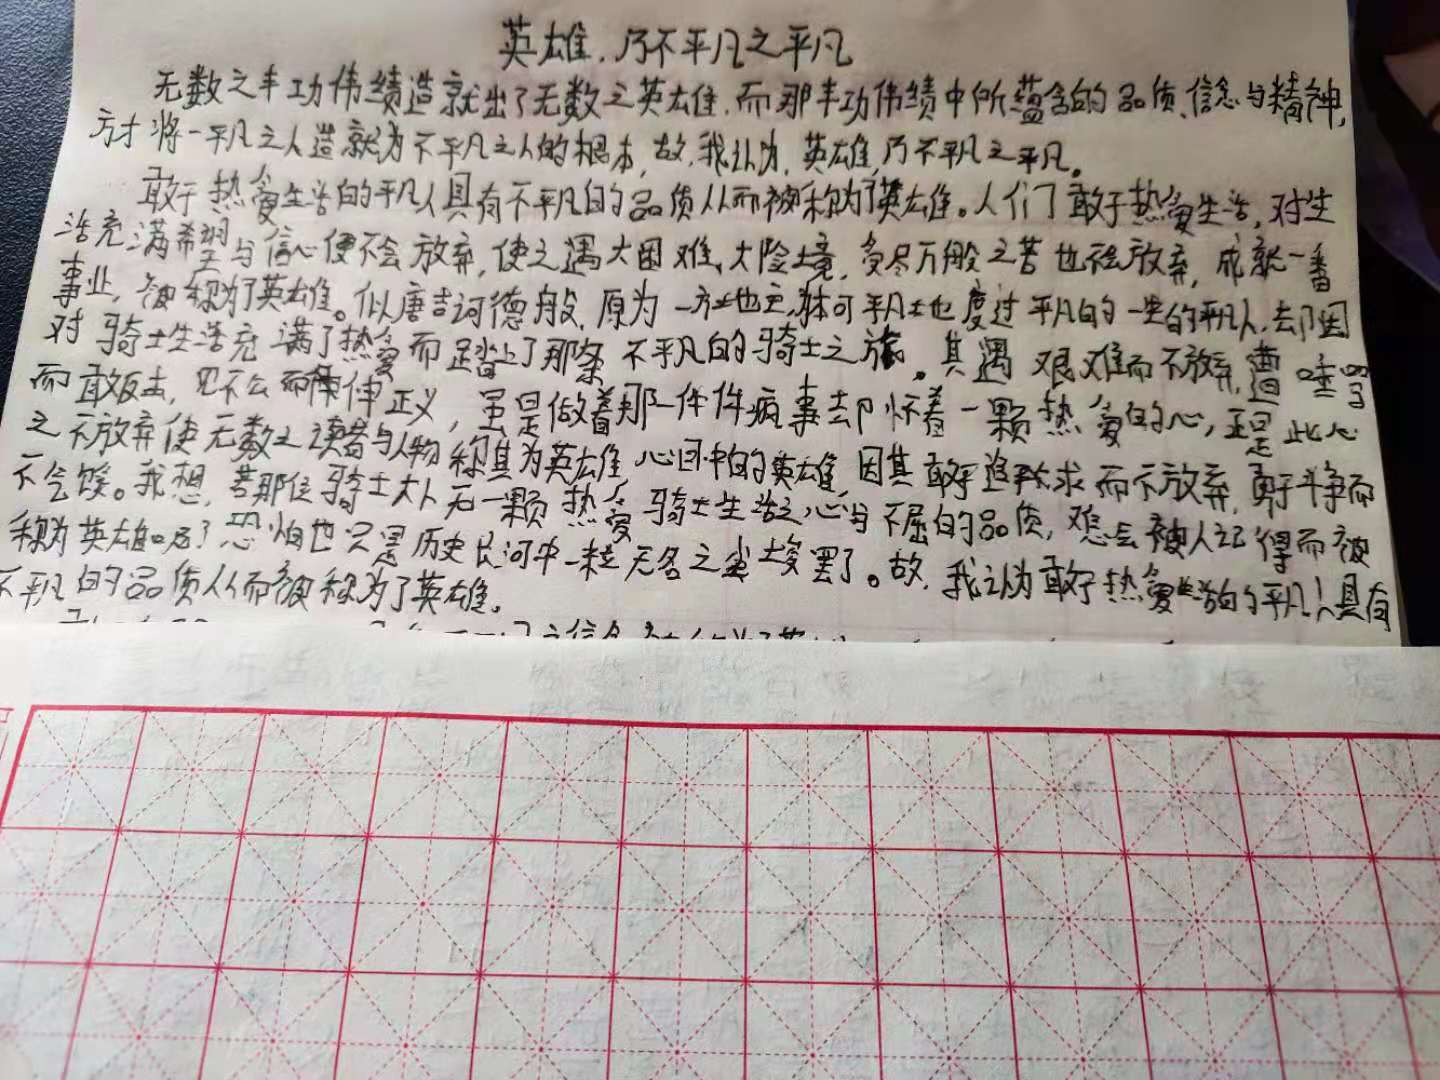 英雄,乃不平凡之平凡
无数之丰功伟绩造就出了无数之英雄,而那丰功伟绩中所蕴含的品质、信念与精神,
方才将一平凡之人造就为不平凡之人的根本,故,我认为,英雄,乃不平凡之平凡。
敢于热爱生活的平凡人具有不平凡的品质从而被称为了英雄。人们敢于热爱生活,对生
活充满希望与信心便不会放弃,使之遇大困难、大险境,受尽万般之苦也不会放弃,成就一番
事业,被称为了英雄。似唐吉诃德般,原为一方地主,本可平凡地度过平凡的一生的平凡人,却因
对骑士生活充满了热爱而踏上了那条不平凡的骑士之旅。其遇艰难而不放弃,遭
而敢反击,见不公而伸正义,虽是做着那一件件疯事却怀着一颗热爱的心,正是此心
之不放弃使无数之读者与人物称其为英雄,心目中的英雄,因其敢于追求而不放弃,勇于斗争而
不会馁。我想,若那位骑士大人无一颗热爱骑士生活之心与不屈的品质,难会被人记得而被
称为英雄吧?恐怕也只是历史长河中一粒无名之尘埃罢了。故,我认为敢于热爱生活的平凡人具有
不平凡的品质从而被称为了英雄。